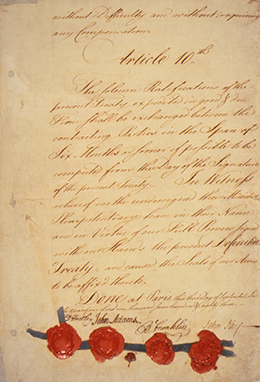 without Difficulty and without requiring
any Compensation.
Article 10th.
The solemn Ratifications of the
present Treaty expedited in good & due
Form shall be exchanged between the
contracting Parties in the Space of
Six Months or sooner if possible to be
computed from the Day of the Signature
of the present Treaty. In Witness
whereof we the undersigned their Ministers
Plenipotentiary have in their Name
and in Virtue of our Full Powers signed
with our Hands the present Definitive
Treaty, and caused the Seals of our Arms
to be affixed thereto.
Done at Paris, this third Day of September,
D Hartley John Adams B Franklin John Jay